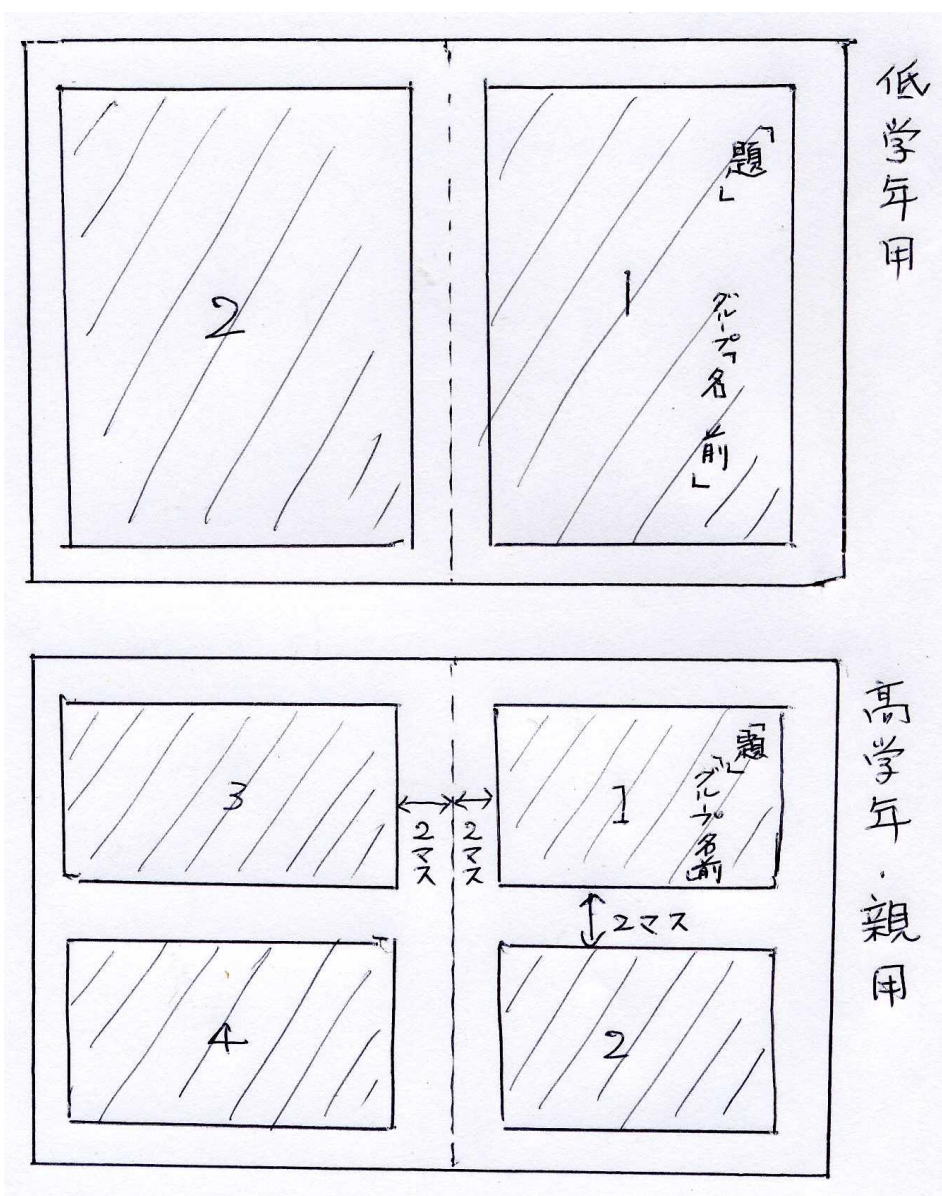 低学年用
「題」
グループ名前」
1
2
高学年・親用
「題」
「グループ名前」
1
2マス
2マス
3
2マス
2
4